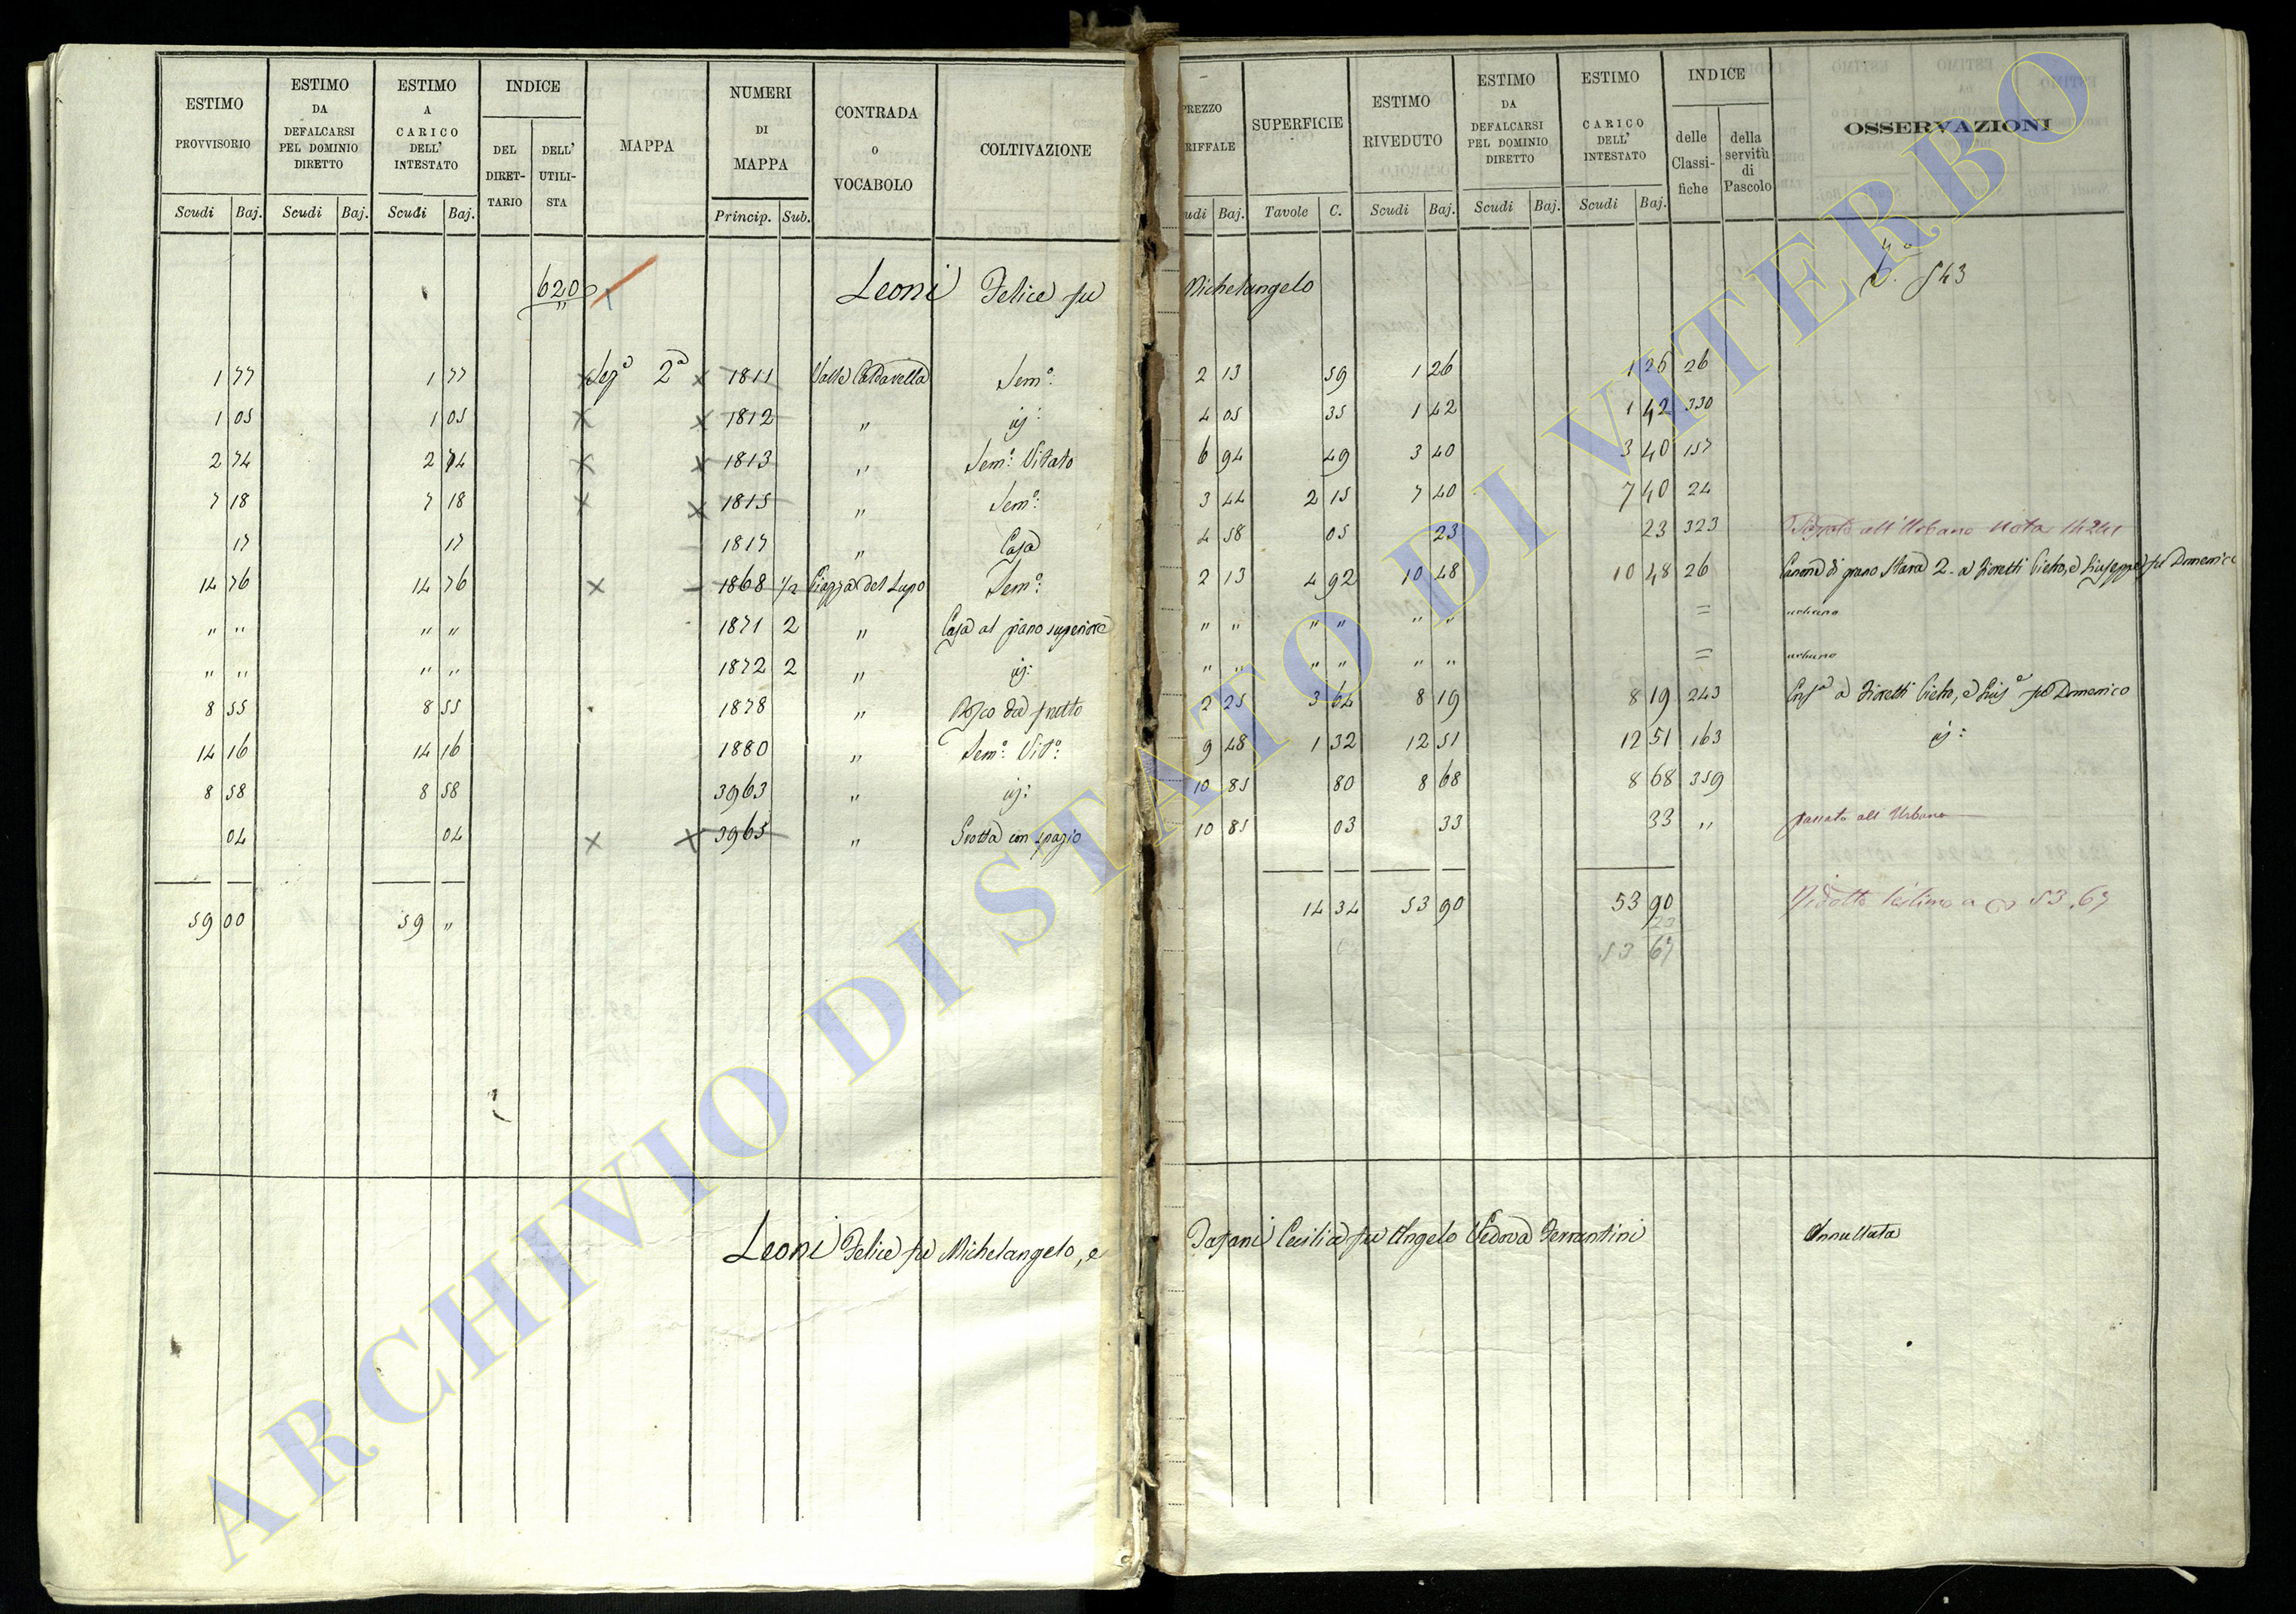 ESTIMO PROVVISORIO | ESTIMO DA DEFALCARSI PEL DOMINIO DIRETTO | ESTIMO A CARICO DELL' INTESTATO | INDICE DEL DIRETTARIO | DELL' UTILISTA | MAPPA | NUMERI DI MAPPA | CONTRADA O VOCABOLO | COLTIVAZIONE | PREZZO RIFFALE | SUPERFICIE | ESTIMO RIVEDUTO | ESTIMO DA DEFALCARSI PEL DOMINIO DIRETTO | ESTIMO CARICO DELL' INTESTATO | INDICE delle Classifiche | della servitù di Pascolo | OSSERVAZIONI
Scudi | Baj. | Scudi | Baj. | Scudi | Baj. | Princip. | Sub. | udi | Baj. | Tavole | C. | Scudi | Baj. | Scudi | Baj. | Scudi | Baj.
620 Leoni Felice fu Michelangelo 543
1 77 | 1 77 | Sezª 2ª | 1811 | Valle | Semº: | 2 13 | 59 | 1 26 | 1 26 | 26
1 05 | 1 05 | 1812 | " | ij: | 4 05 | 35 | 1 42 | 1 42 | 330
2 74 | 2 74 | 1813 | " | Semº: Vitato | 6 94 | 49 | 3 40 | 3 40 | 157
7 18 | 7 18 | 1815 | " | Semº: | 3 44 | 2 15 | 7 40 | 7 40 | 24
17 | 17 | 1817 | " | Casa | 4 58 | 05 | 23 | 23 | 323 | all'Urbano Nota
14 76 | 14 76 | 1868 | 1/2 | Piazza del Lupo | Semº: | 2 13 | 4 92 | 10 48 | 10 48 | 26 | Canone di grano Stara 2 - a Fioretti Pietro, e Giuseppe fu Domenico
" " | " " | 1871 | 2 | " | Casa al piano superiore | " " | " " | " " | = | urbano
" " | " " | 1872 | 2 | " | ij: | " " | " " | " " | = | urbano
8 55 | 8 55 | 1878 | " | Bosco da frutto | 2 25 | 3 64 | 8 19 | 8 19 | 243 | a Fioretti Pietro, e Giusª fu Domenico
14 16 | 14 16 | 1880 | " | Semº: Vitº: | 9 48 | 1 32 | 12 51 | 12 51 | 163 | ij:
8 58 | 8 58 | 3963 | " | ij: | 10 85 | 80 | 8 68 | 8 68 | 359
04 | 04 | 3965 | " | Grotta con spazio | 10 85 | 03 | 33 | 33 | " | passato all Urbano
59 00 | 59 " | 14 34 | 53 90 | 53 90 | Ridotto l'estimo a 53.67
23
53 67
Leoni Felice fu Michelangelo, e Cecilia fu Angelo Vedova Ferrantini Annullata
ARCHIVIO DI STATO DI VITERBO